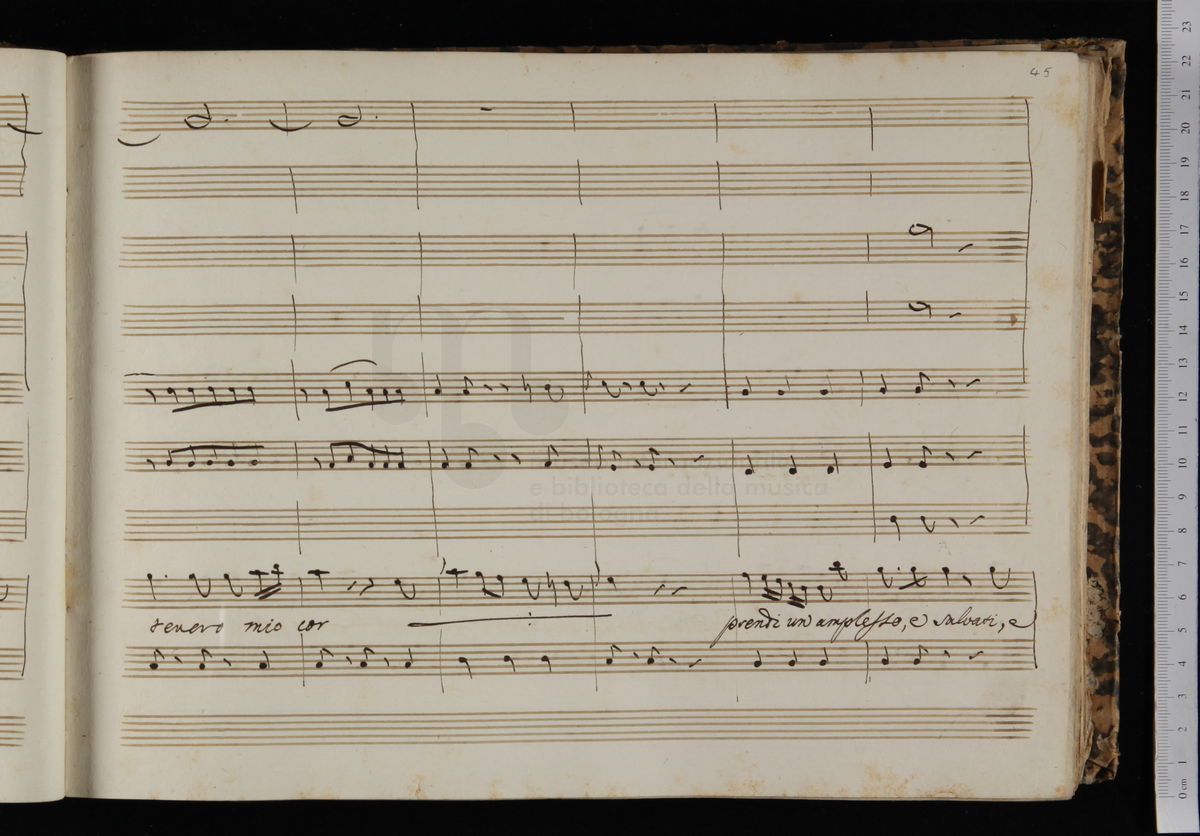 45
tenero mio cor prendi un amplesso, e salvati, e
e biblioteca della musica
23
22
21
20
19
18
17
16
15
14
13
12
11
10
9
8
7
6
5
4
3
2
1
0 cm